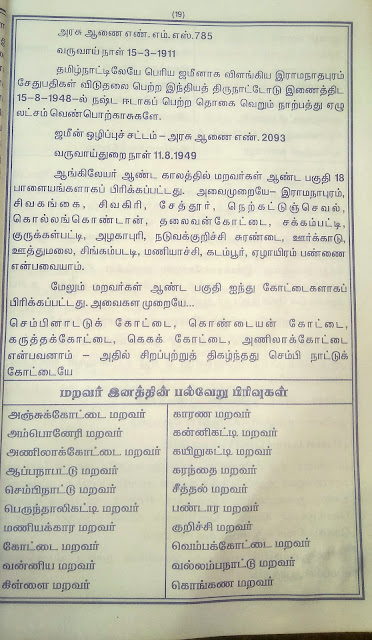 (19)
அரசு ஆணை எண். எம். எஸ்.785
வருவாய் நாள் 15-3-1911
தமிழ்நாட்டிலேயே பெரிய ஜமீனாக விளங்கிய இராமநாதபுரம்
சேதுபதிகள் விடுதலை பெற்ற இந்தியத் திருநாட்டோடு இணைத்திட
15-8-1948-ல் நஷ்ட ஈடாகப் பெற்ற தொகை வெறும் நாற்பத்து ஏழு
லட்சம் வெண்பொற்காசுகளே.
ஜமீன் ஒழிப்புச் சட்டம் - அரசு ஆணை எண். 2093
வருவாய்துறை நாள் 11.8.1949
ஆங்கிலேயர் ஆண்ட காலத்தில் மறவர்கள் ஆண்ட பகுதி 18
பாளையங்களாகப் பிரிக்கப்பட்டது. அவைமுறையே- இராமநாபுரம்,
சிவகங்கை, சிவகிரி, சேத்தூர், நெற்கட்டுஞ்செவல்,
கொல்லங்கொண்டான், தலைவன்கோட்டை, சக்கம்பட்டி,
குருக்கள்பட்டி, அழகாபுரி, நடுவக்குறிச்சி சுரண்டை, ஊர்க்காடு,
ஊத்துமலை, சிங்கம்படடி, மணியாச்சி, கடம்பூர், ஏழாயிரம் பண்ணை
என்பவையாம்.
மேலும் மறவர்கள் ஆண்ட பகுதி ஐந்து கோட்டைகளாகப்
பிரிக்கப்பட்டது. அவைகள முறையே...
செம்பினாடடுக் கோட்டை, கொண்டையன் கோட்டை,
கருத்தக்கோட்டை, கெகக் கோட்டை, அணிலாக்கோட்டை
என்பவனாம் - அதில் சிறப்புற்றுத் திகழ்ந்தது செம்பி நாட்டுக்
கோட்டையே
மறவர் இனத்தின் பல்வேறு பிரிவுகள்
அஞ்சுக்கோட்டை மறவர்
காரண மறவர்
அம்பொனேரி மறவர்
கன்னிகட்டி மறவர்
அணிலாக்கோட்டை மறவர்
கயிறுகட்டி மறவர்
ஆப்பநாபட்டு மறவர்
கரந்தை மறவர்
செம்பிநாட்டு மறவர்
சீத்தல் மறவர்
பெருந்தாலிகட்டி மறவர்
பண்டார மறவர்
மணியக்கார மறவர்
குறிச்சி மறவர்
கோட்டை மறவர்
வெம்பக்கோட்டை மறவர்
வன்னிய மறவர்
வல்லம்பநாட்டு மறவர்
கிள்ளை மறவர்
கொங்கண மறவர்